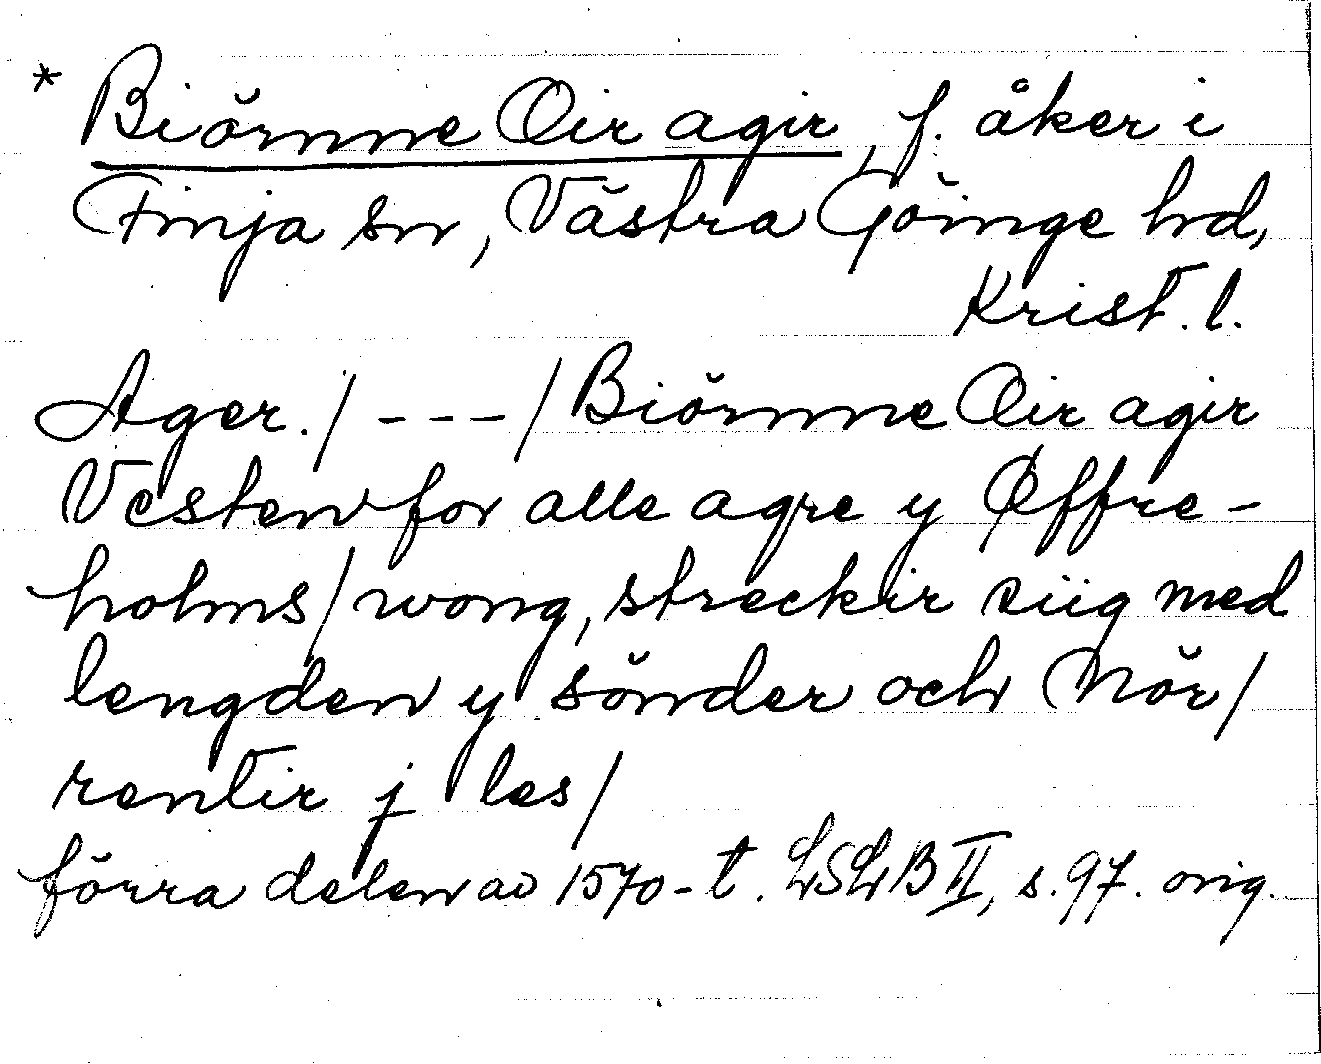 * Biörnne Oir agir, f. åker i
Finja sn, Västra Göinge hd,
Krist. l.
Ager./ - - - / Biörnne Oir agir
Vesten for alle agre y Øffre-
holms/ wong, streckir siig med
lengden y sönder och Nör/
rentir j les/
förra delen av 1570-t. LSLB II, s. 97. orig.